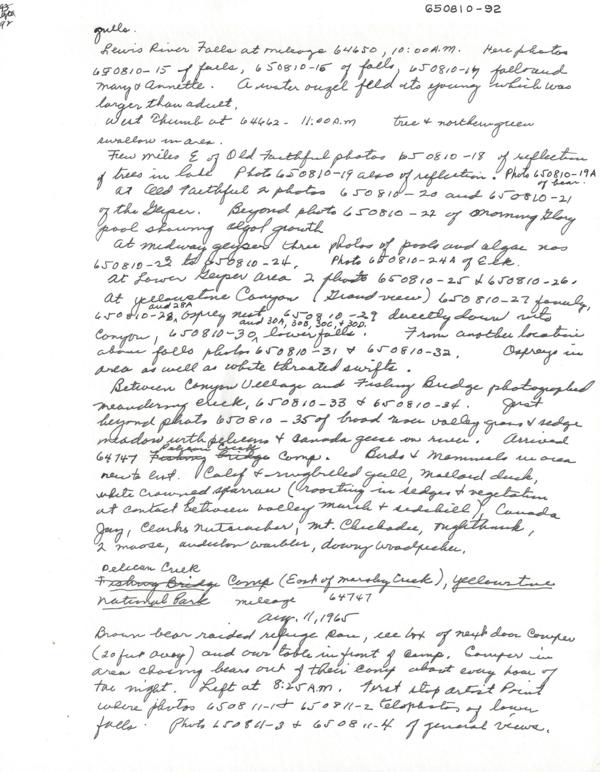 650810-92
gulls.
Lewis River Falls at mileage 64650, 10:00 A.M. Here photos
650810-15 of falls, 650810-16 of falls, 650810-17 falls and
Mary & Annette. A water ouzel feed its young which was
larger than adult.
West Thumb at 64662 - 11:00 A.M tree & northern green
swallow in area.
Few miles E of Old Faithful photos 650810-18 of reflection
of trees in lake Photo 650810-19 also of reflection. Photo 650810-19A
of bear.
At Old Faithful 2 photos 650810-20 and 650810-21
of the Geyser. Beyond photo 650810-22 of Morning Glory
pool showing algal growth
At midway geyser three photos of pools and algae nos
650810-23 to 650810-24. Photo 650810-24A of Elk.
At Lower Geyser area 2 photos 650810-25 & 650810-26.
At Yellowstone Canyon (Grand view) 650810-27 family,
and 28A
650810-28, Osprey nest, 650810-29 directly down into
and 30A, 30B, 30C, & 30D.
Canyon, 650810-30, lower falls. From another location
above falls photos 650810-31 & 650810-32. Ospreys in
area as well as white throated swifts.
Between Canyon Village and Fishing Bridge photographed
meandering creek, 650810-33 & 650810-34. Just
beyond photo 650810-35 of broad river valley grass & sedge
meadow with pelicans & Canada geese on river. Arrived
Pelican Creek
64747 Fishing Bridge Camp. Birds & Mammals in area
new to list. Calif & ringbilled gull, Mallard duck,
white crowned sparrow (roosting in sedges & vegetation
at contact between valley marsh & sidehill), Canada
Jay, Clarks Nutcracker, Mt. Chickadee, nighthawk,
2 moose, audubon warbler, downy woodpecker.
Pelican Creek
Fishing Bridge Camp (East of marshy Creek), Yellowstone
National Park mileage 64747
Aug. 11, 1965
Brown bear raided refuge can, ice box of next door camper
(20 feet away) and our table in front of camp. Camper in
area chasing bears out of their camp about every hour of
the night. Left at 8:25 A.M. First stop Artist Point
where photos 650811-1 & 650811-2 telephotos of lower
falls. Photo 650811-3 & 650811-4 of general views.